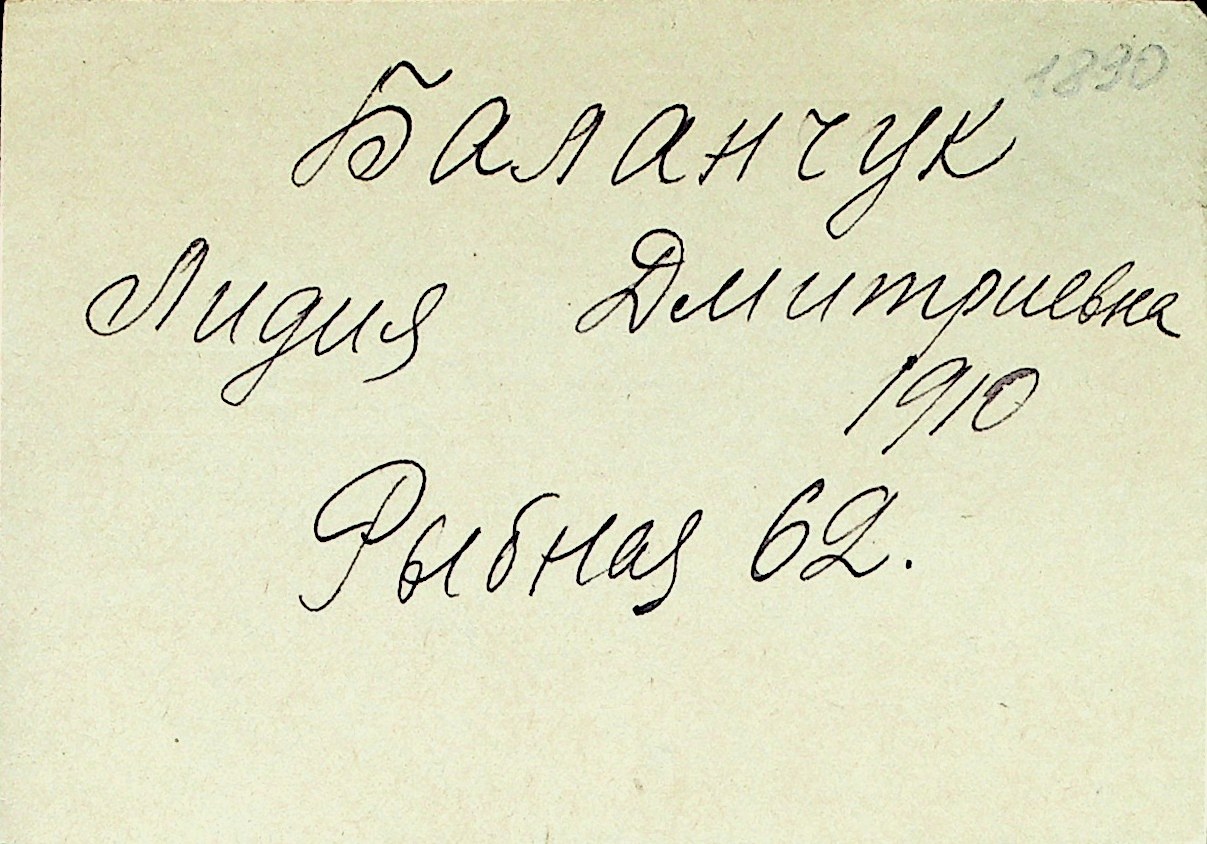 1890
Баланчук
Лидия Дмитриевна
1910
Рыбная 62.